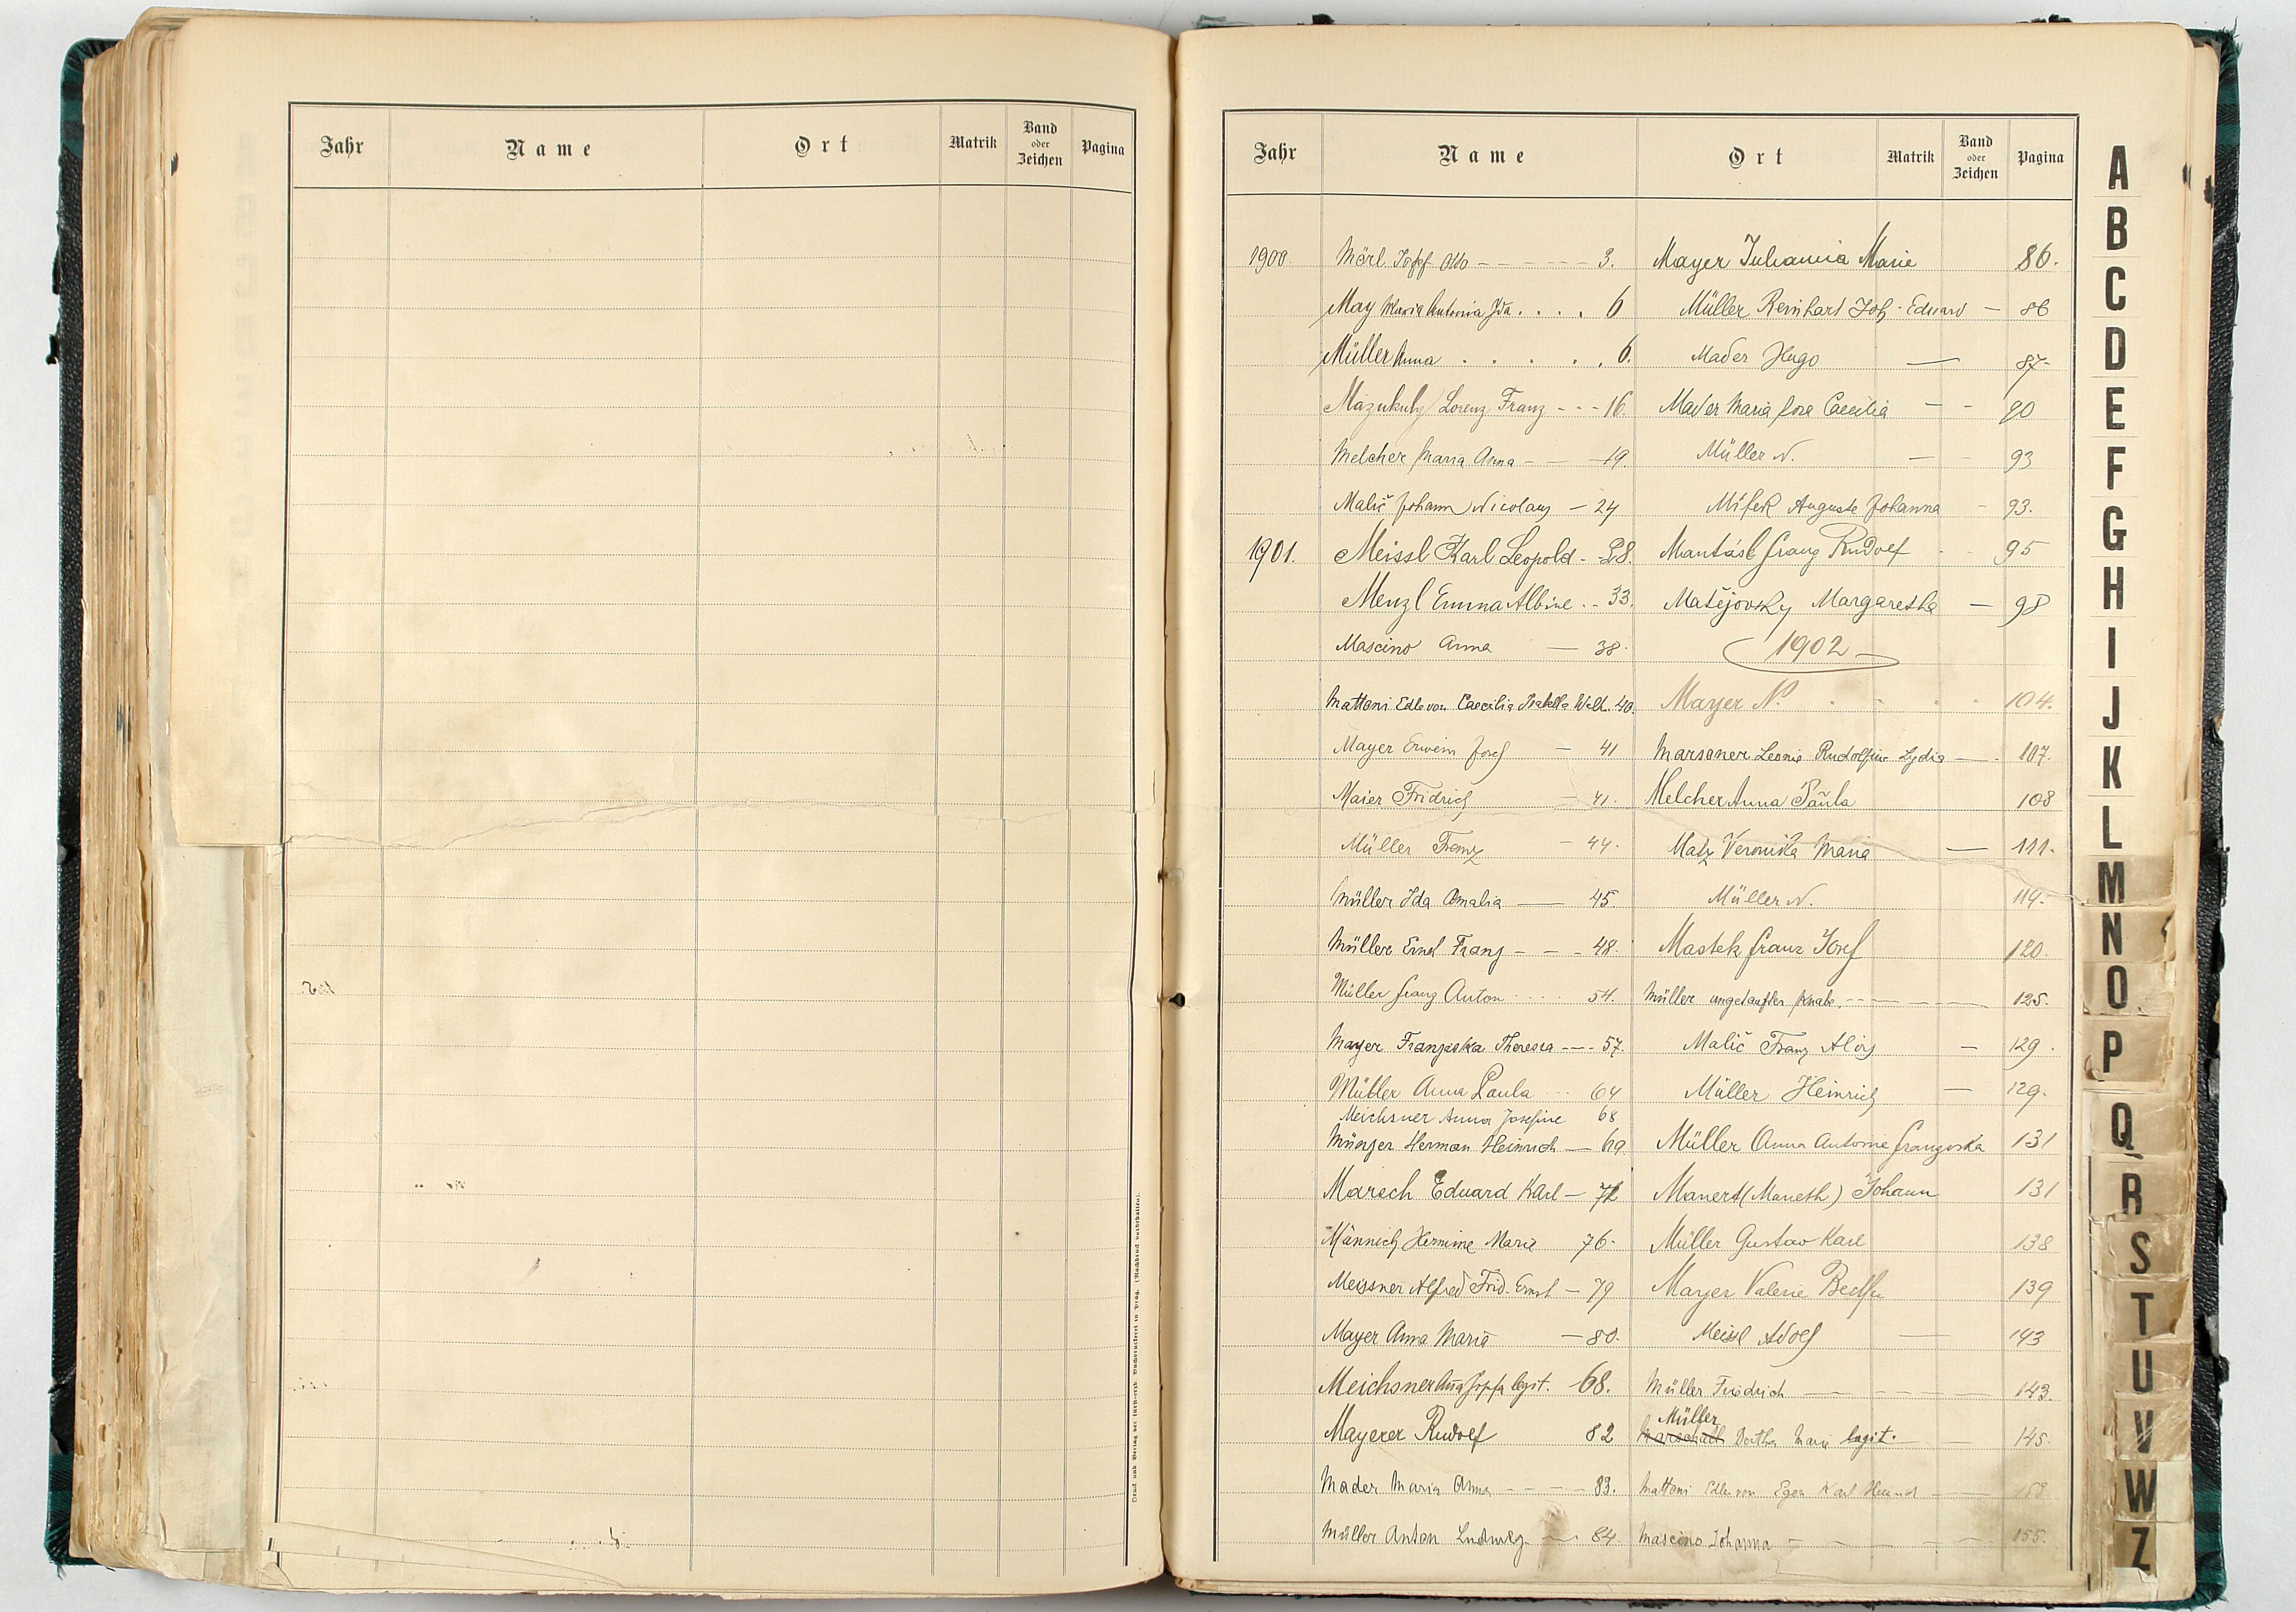 Jahr Name Ort Matrik Band oder Zeichen Pagina
Druck und Verlag der fürsterzb. Buchdruckerei in Prag. (Nachdruck vorbehalten).
Jahr Name Ort Matrik Band oder Zeichen Pagina
1900. Mörl Josef Otto - - - - - - 3. Mayer Julianna Marie 86.
May Maria Antonia Ida . . . . 6 Müller Reinhart Joh. Eduard — 86
Müller Anna . . . . . . 6. Mader Hugo — 87-
Lorenz Franz - - - 16. Mader Maria Rosa Caecilia - - 90
Melcher Maria Anna - — 19. Müller N. — - 93
Malič Johann Nicolaus — 24 Auguste Johanna - 93.
1901. Meissl Karl Leopold - 28. Franz Rudolf 95
Menzl Emma Albine . - 33. Matějovsky Margaretha — 98
Mascino Anna — 38. 1902
Mattoni Edle von Caecilia Isabella Walb. 40. Mayer N. 104.
Mayer Erwin Josef — 41 Marsoner Leonie Rudolfine Lydia — 107.
Maier Fridrich — 41. Melcher Anna Paula 108
Müller Franz - 44. Matz Veronika Maria — 111.
Müller Ida Amalia — 45. Müller N. 114.
Müller Ernst Franz - - - 48. Mastek Franz Josef 120.
Müller Franz Anton . . . . 54. Müller ungetaufter Knabe. - - - 125.
Mayer Franziska Theresia - - - 57. Malič Franz Alois — 129.
Müller Anna Paula - - 64 Müller Heinrich — 129.
Meichsner Anna Josefine 68
Münzer Herman Heinrich — 69. Müller Anna Antonie Franziska 131
Marsch Eduard Karl — 72 Manert (Maneth) Johann 131
Männich Hermine Marie 76. Müller Gustav Karl 138
Meissner Alfred Frid. Ernst — 79 Mayer Valerie Bertha 139
Mayer Anna Maria — 80. Meissl Adolf — 143
Meichsner Anna Josefa legit. 68. Müller Friedrich — - - - 143.
Müller
Mayerer Rudolf 82 Marschall Bertha Marie legit. — 145.
Mader Maria Anna - - - - 83. Mattoni Edler von Egon Karl Heinrich - — 153.
Müller Anton Ludwig — 84. Mascino Johanna - - - - 155.
A
B
C
D
E
F
G
H
I
J
K
L
M
N
O
P
Q
R
S
T
U
V
W
Z